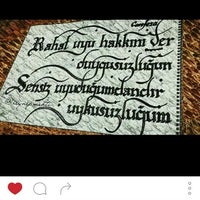 Rahat uyu hakkım der
duygusuzluğun
Sensiz uyuduğumdandır
uykusuzluğum